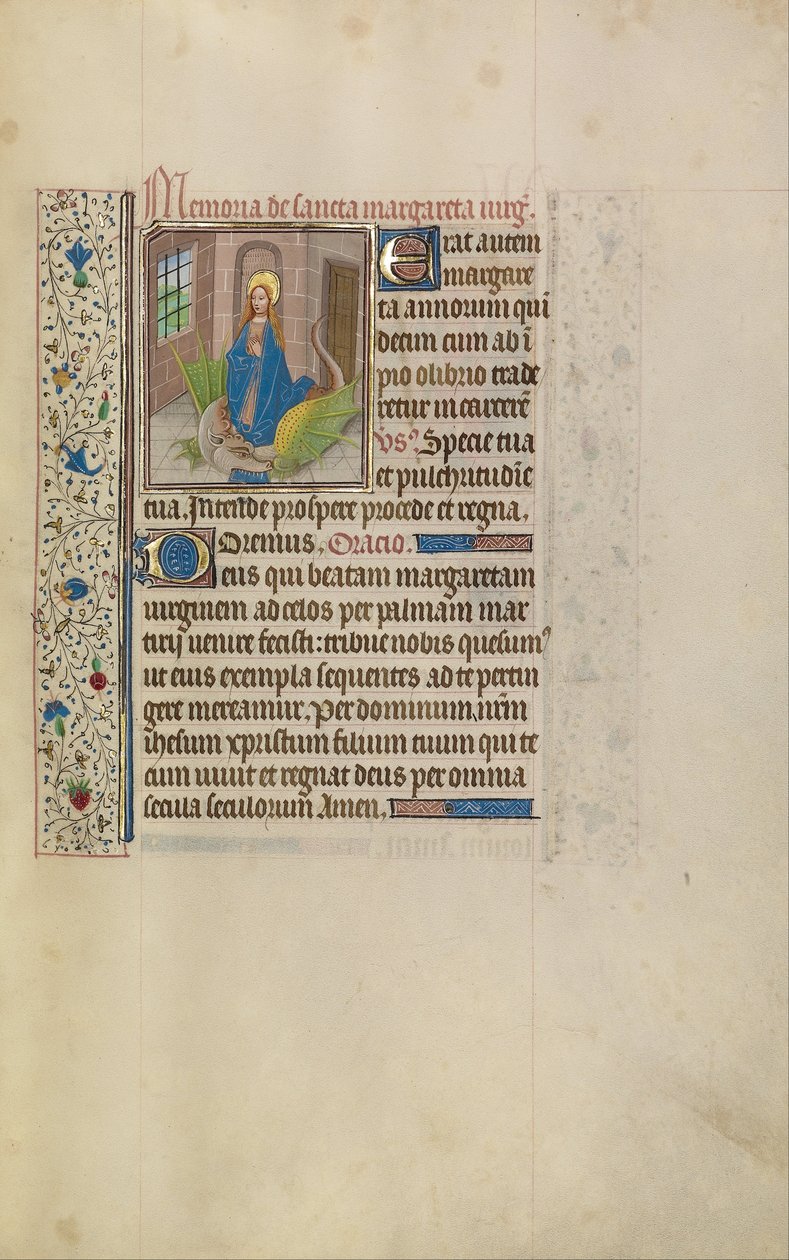 Memoria de sancta margareta uirg̃.
Erat autem
margare
ta annorum qui
decim cum ab ĩ
pio olibrio trade
retur in carcerẽ
Vs᾽ Specie tua
et pulchritudĩe
tua. Intende prospere procede et regna.
Oremus. Oracio.
Deus qui beatam margaretam
uirginem ad celos per palmam mar
tirij uenire fecisti: tribue nobis quesum᾽
ut eius exempla sequentes ad te pertin
gere mereamur. Per dominum nr̃m
ihesum xpristum filium tuum qui te
cum uiuit et regnat deus per omnia
secula seculorum̃ Amen.